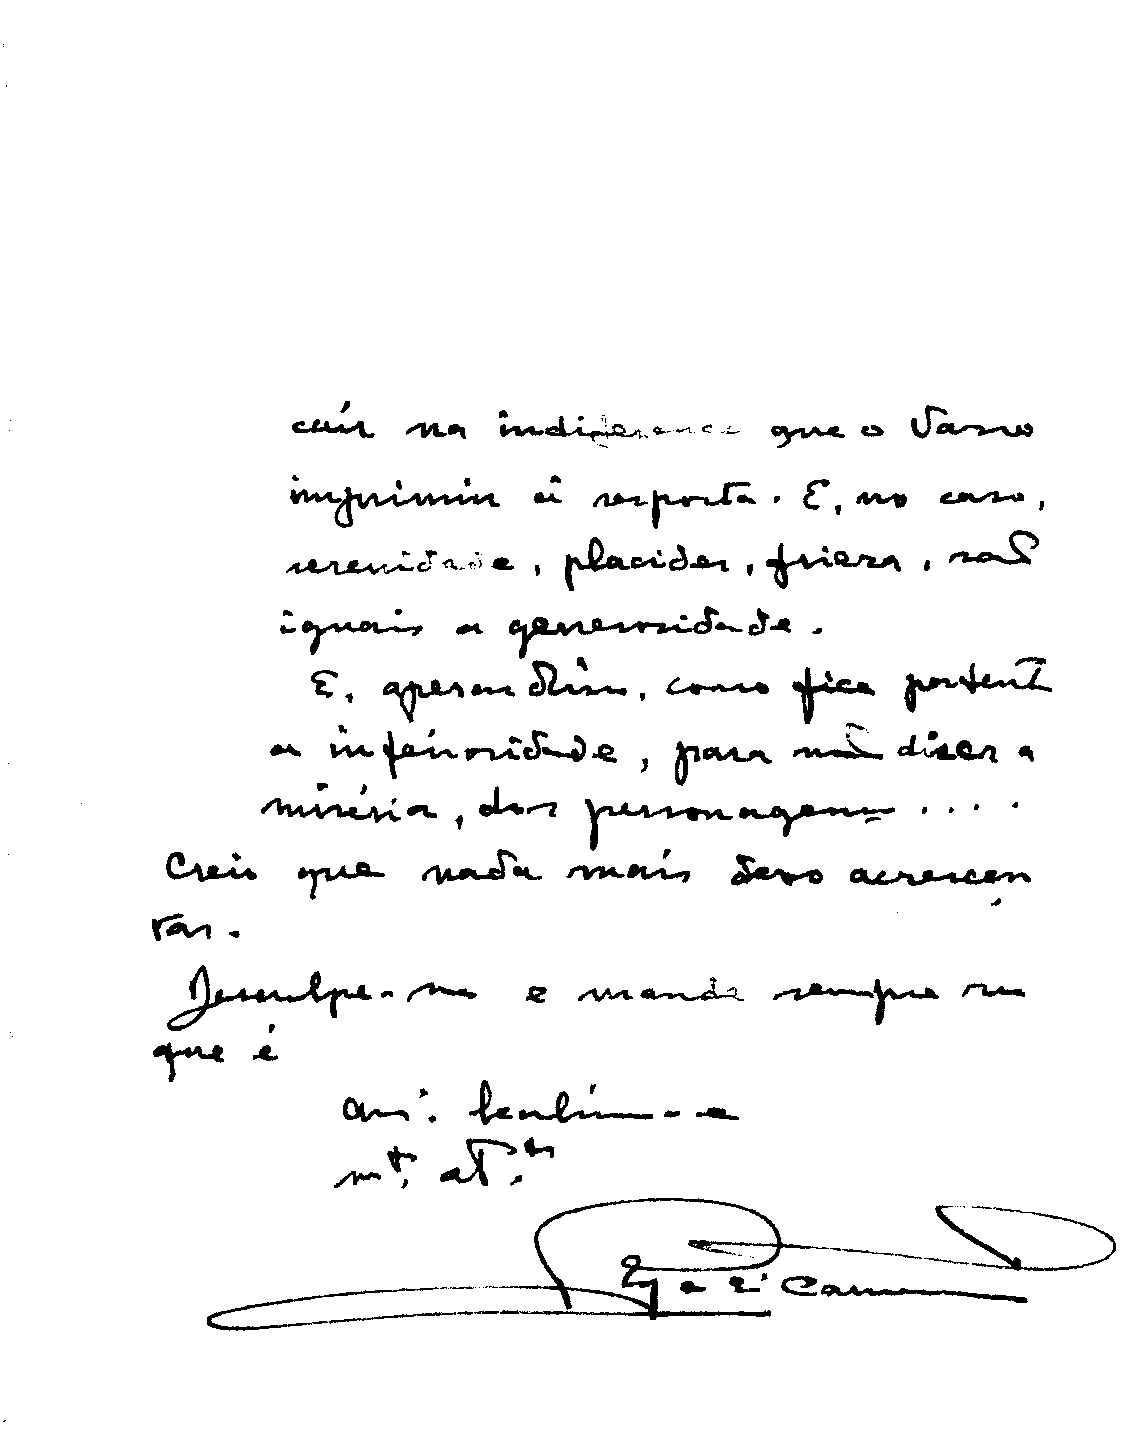 cair na indiferença que o Vasco
imprimiu à resposta. E, no caso,
serenidade, placidez, frieza, são
iguais a generosidade.
E, apesar disso, como fica patente
a inferioridade, para não dizer a
miséria, dos personagens....
Creio que nada mais devo acrescen
tar.
Desculpe-me e mande sempre no
que é
am.º
m.to at.to